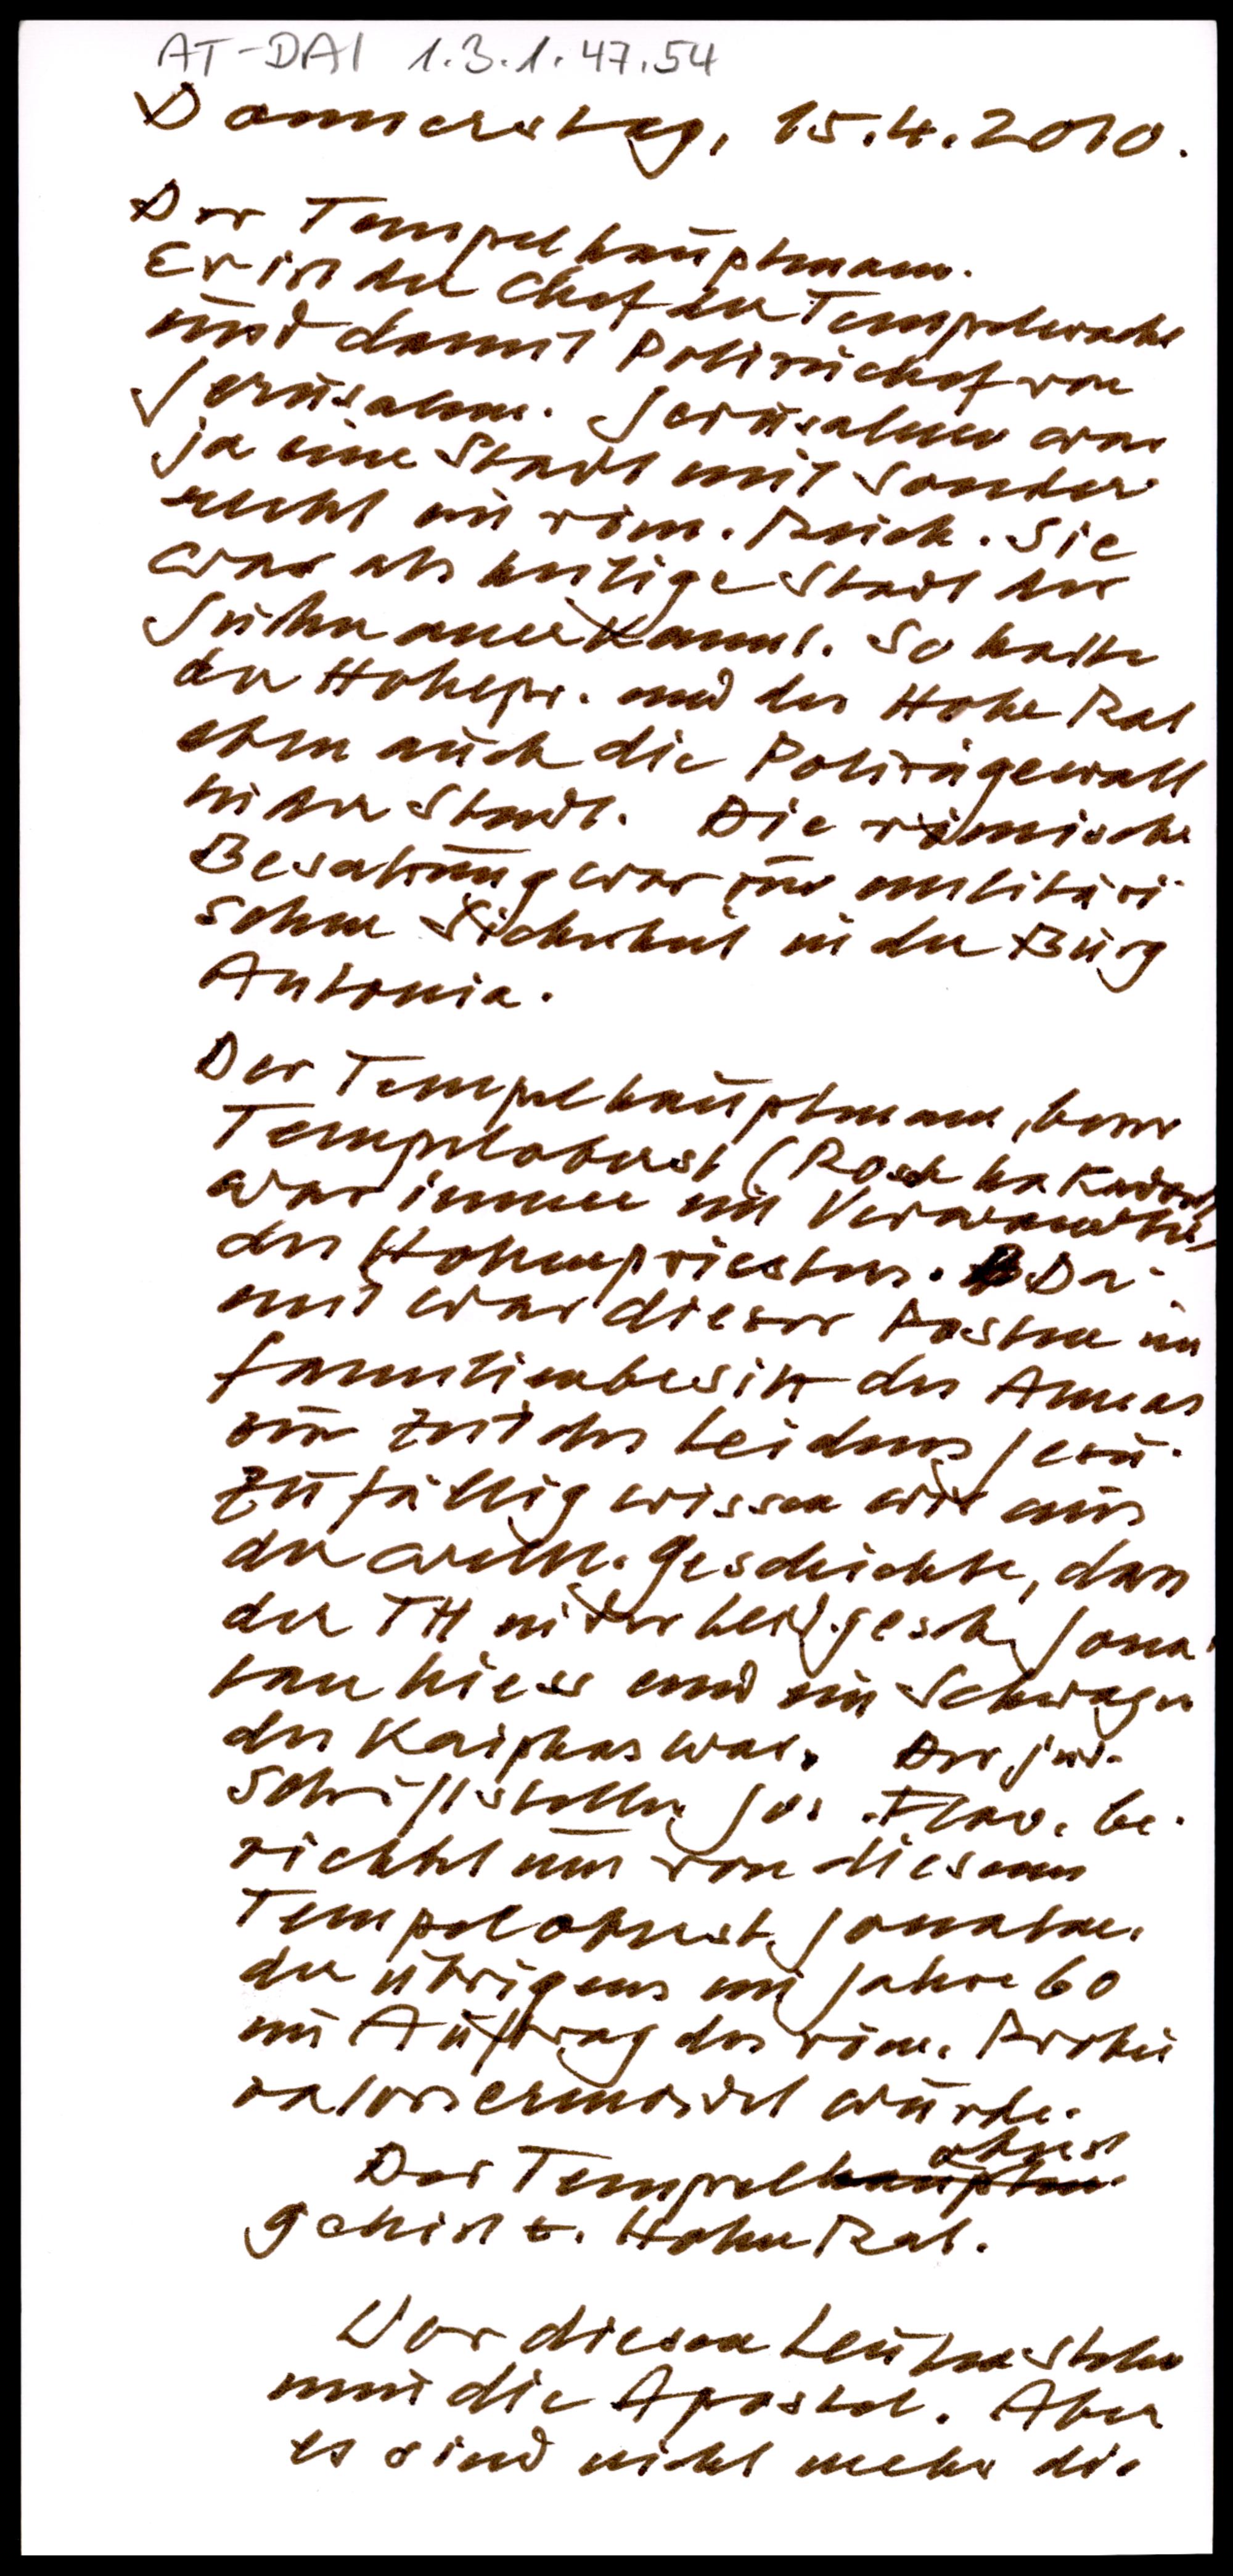 AT-DAI 1.3.1.47.54
Donnerstag, 15.4.2010.
Der Tempelhauptmann.
Er ist der Chef der Tempelwache
und damit Polizeichef von
Jerusalem. Jerusalem war
ja eine Stadt mit Sonder
recht im röm. Reich. Sie
war als heilige Stadt der
Juden anerkannt. So hatte
der Hohepr. und der Hohe Rat
eben auch die Polizeigewalt
in der Stadt. Die römische
Besatzung war zur militäri-
schen Sicherheit in der Burg
Antonia.
Der Tempelhauptmann, bzw
Tempeloberst (Rosch ha
war immer ein Verwandter
des Hohenpriesters. Da-
mit war dieser Posten im
Familienbesitz des Annas
zur Zeit des Leidens Jesu.
Zufällig wissen wir aus
der weltl. Geschichte, dass
der TH in der Leid.gesch. Jona-
tan hiess und ein Schwager
des Kaiphas war. Der jüd.
Schriftsteller Jos. Flav. be-
richtet uns von diesem
Tempeloberst Jonatan,
der übrigens im Jahre 60
im Auftrag des röm. Proku
rators ermordet wurde.
oberst
Der Tempelhauptm
gehört z. Hohen Rat.
Vor diesen Leuten stehen
nun die Apostel. Aber
es sind nicht mehr die